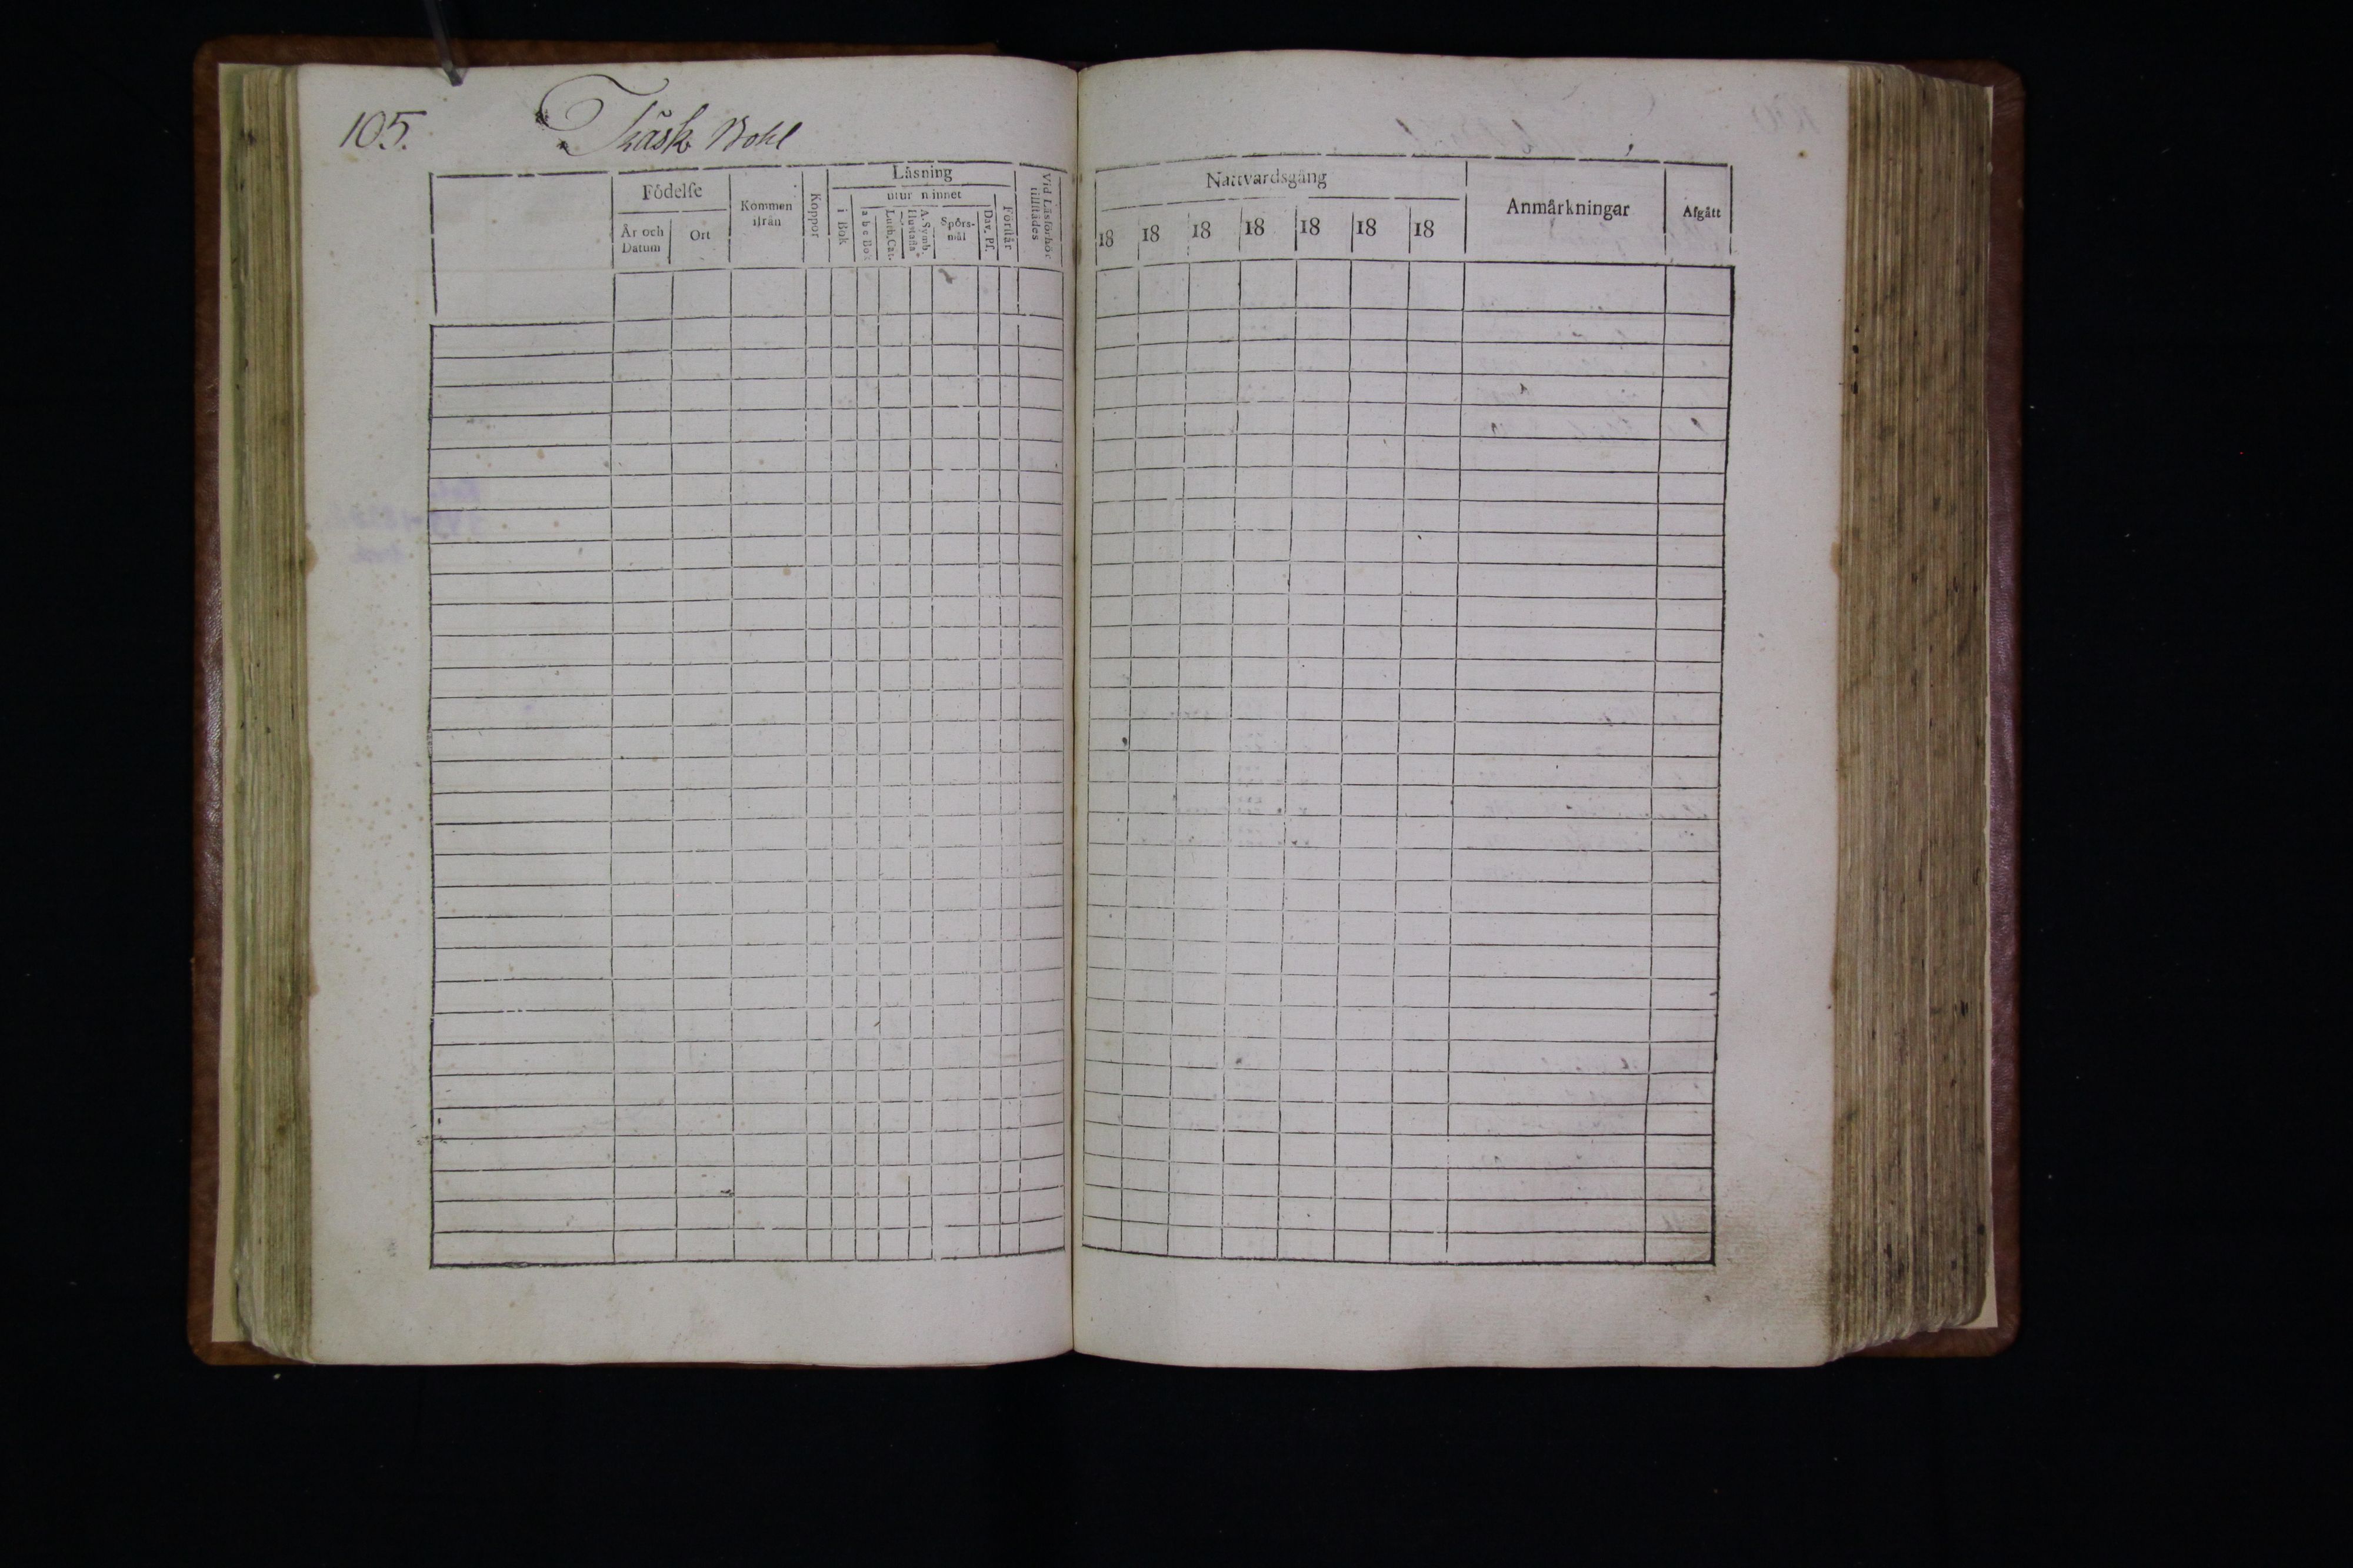 105. Träsk Bohl
Födelse
År och Datum
Ort
Kommen ifrån
Koppor
Läsning
utur minnet
i Bok
a b c Bok
Luth. Cat.
A. Symb. Hustafla
Spörsmål
Dav. Ps.
Förstår
Vid Läsförhör tillstädes
Nattvardsgång
18 18 18 18 18 18 18
Anmärkningar
Afgått